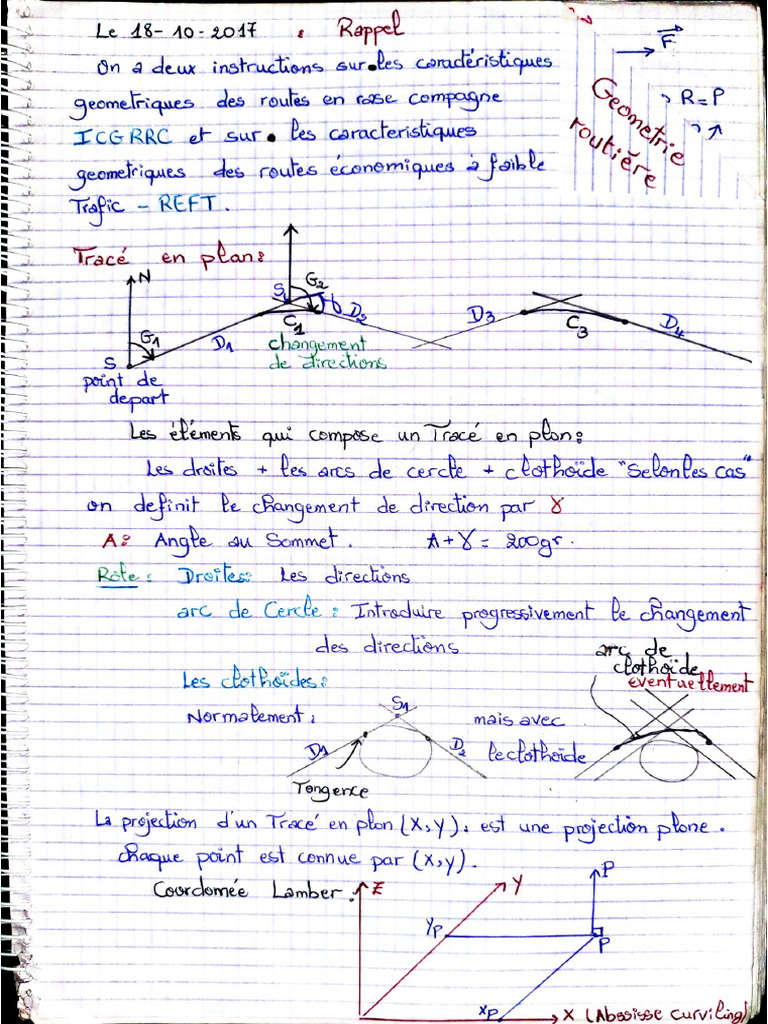 Le 18-10-2017 : Rappel
On a deux instructions sur les caractéristiques
geometriques des routes en rase compagne
ICGRRC et sur les caracteristiques
geometriques des routes économiques à faible
Trafic - REFT.
F
R=P
Geometrie
routière
Tracé en plan:
N
G1
S
D1
point de
depart
S1
G2
C1
D2
changement
de directions
D3
C3
D4
Les éléments qui compose un Tracé en plan:
Les droites + les arcs de cercle + clothoïde "Selon les cas"
on definit le changement de direction par γ
A: Angle au Sommet. A+γ = 200gr.
Rôle: Droites: Les directions
arc de Cercle: Introduire progressivement le changement
des directions
arc de
clothoïde
eventuellement
Les clothoïdes:
Normalement:
S1
D1
D2
Tangence
mais avec
le clothoïde
La projection d'un Tracé en plan (X,Y), est une projection plane.
chaque point est connue par (X,Y).
Coordomée Lamber:
Z
Y
P
YP
P
XP
X (Absisse curviling)